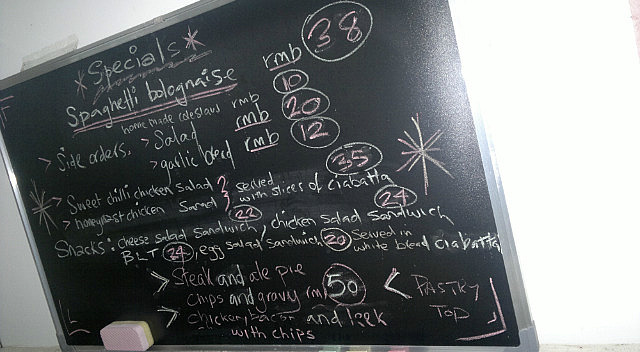 * Specials *
Spaghetti bolognaise rmb 38
home made coleslaw rmb 10
> Side orders. > Salad rmb 20
> garlic bread rmb 12
> Sweet chilli chicken salad } served 35
> honeyroast chicken Salad } with slices of ciabatta
22 24
Snacks: cheese salad sandwich / chicken salad sandwich
BLT 24, egg salad sandwich 20 Served in white bread ciabatta
> Steak and ale pie
chips and gravy rmb 50 < PASTRY TOP
> Chicken, bacon and leek
with chips